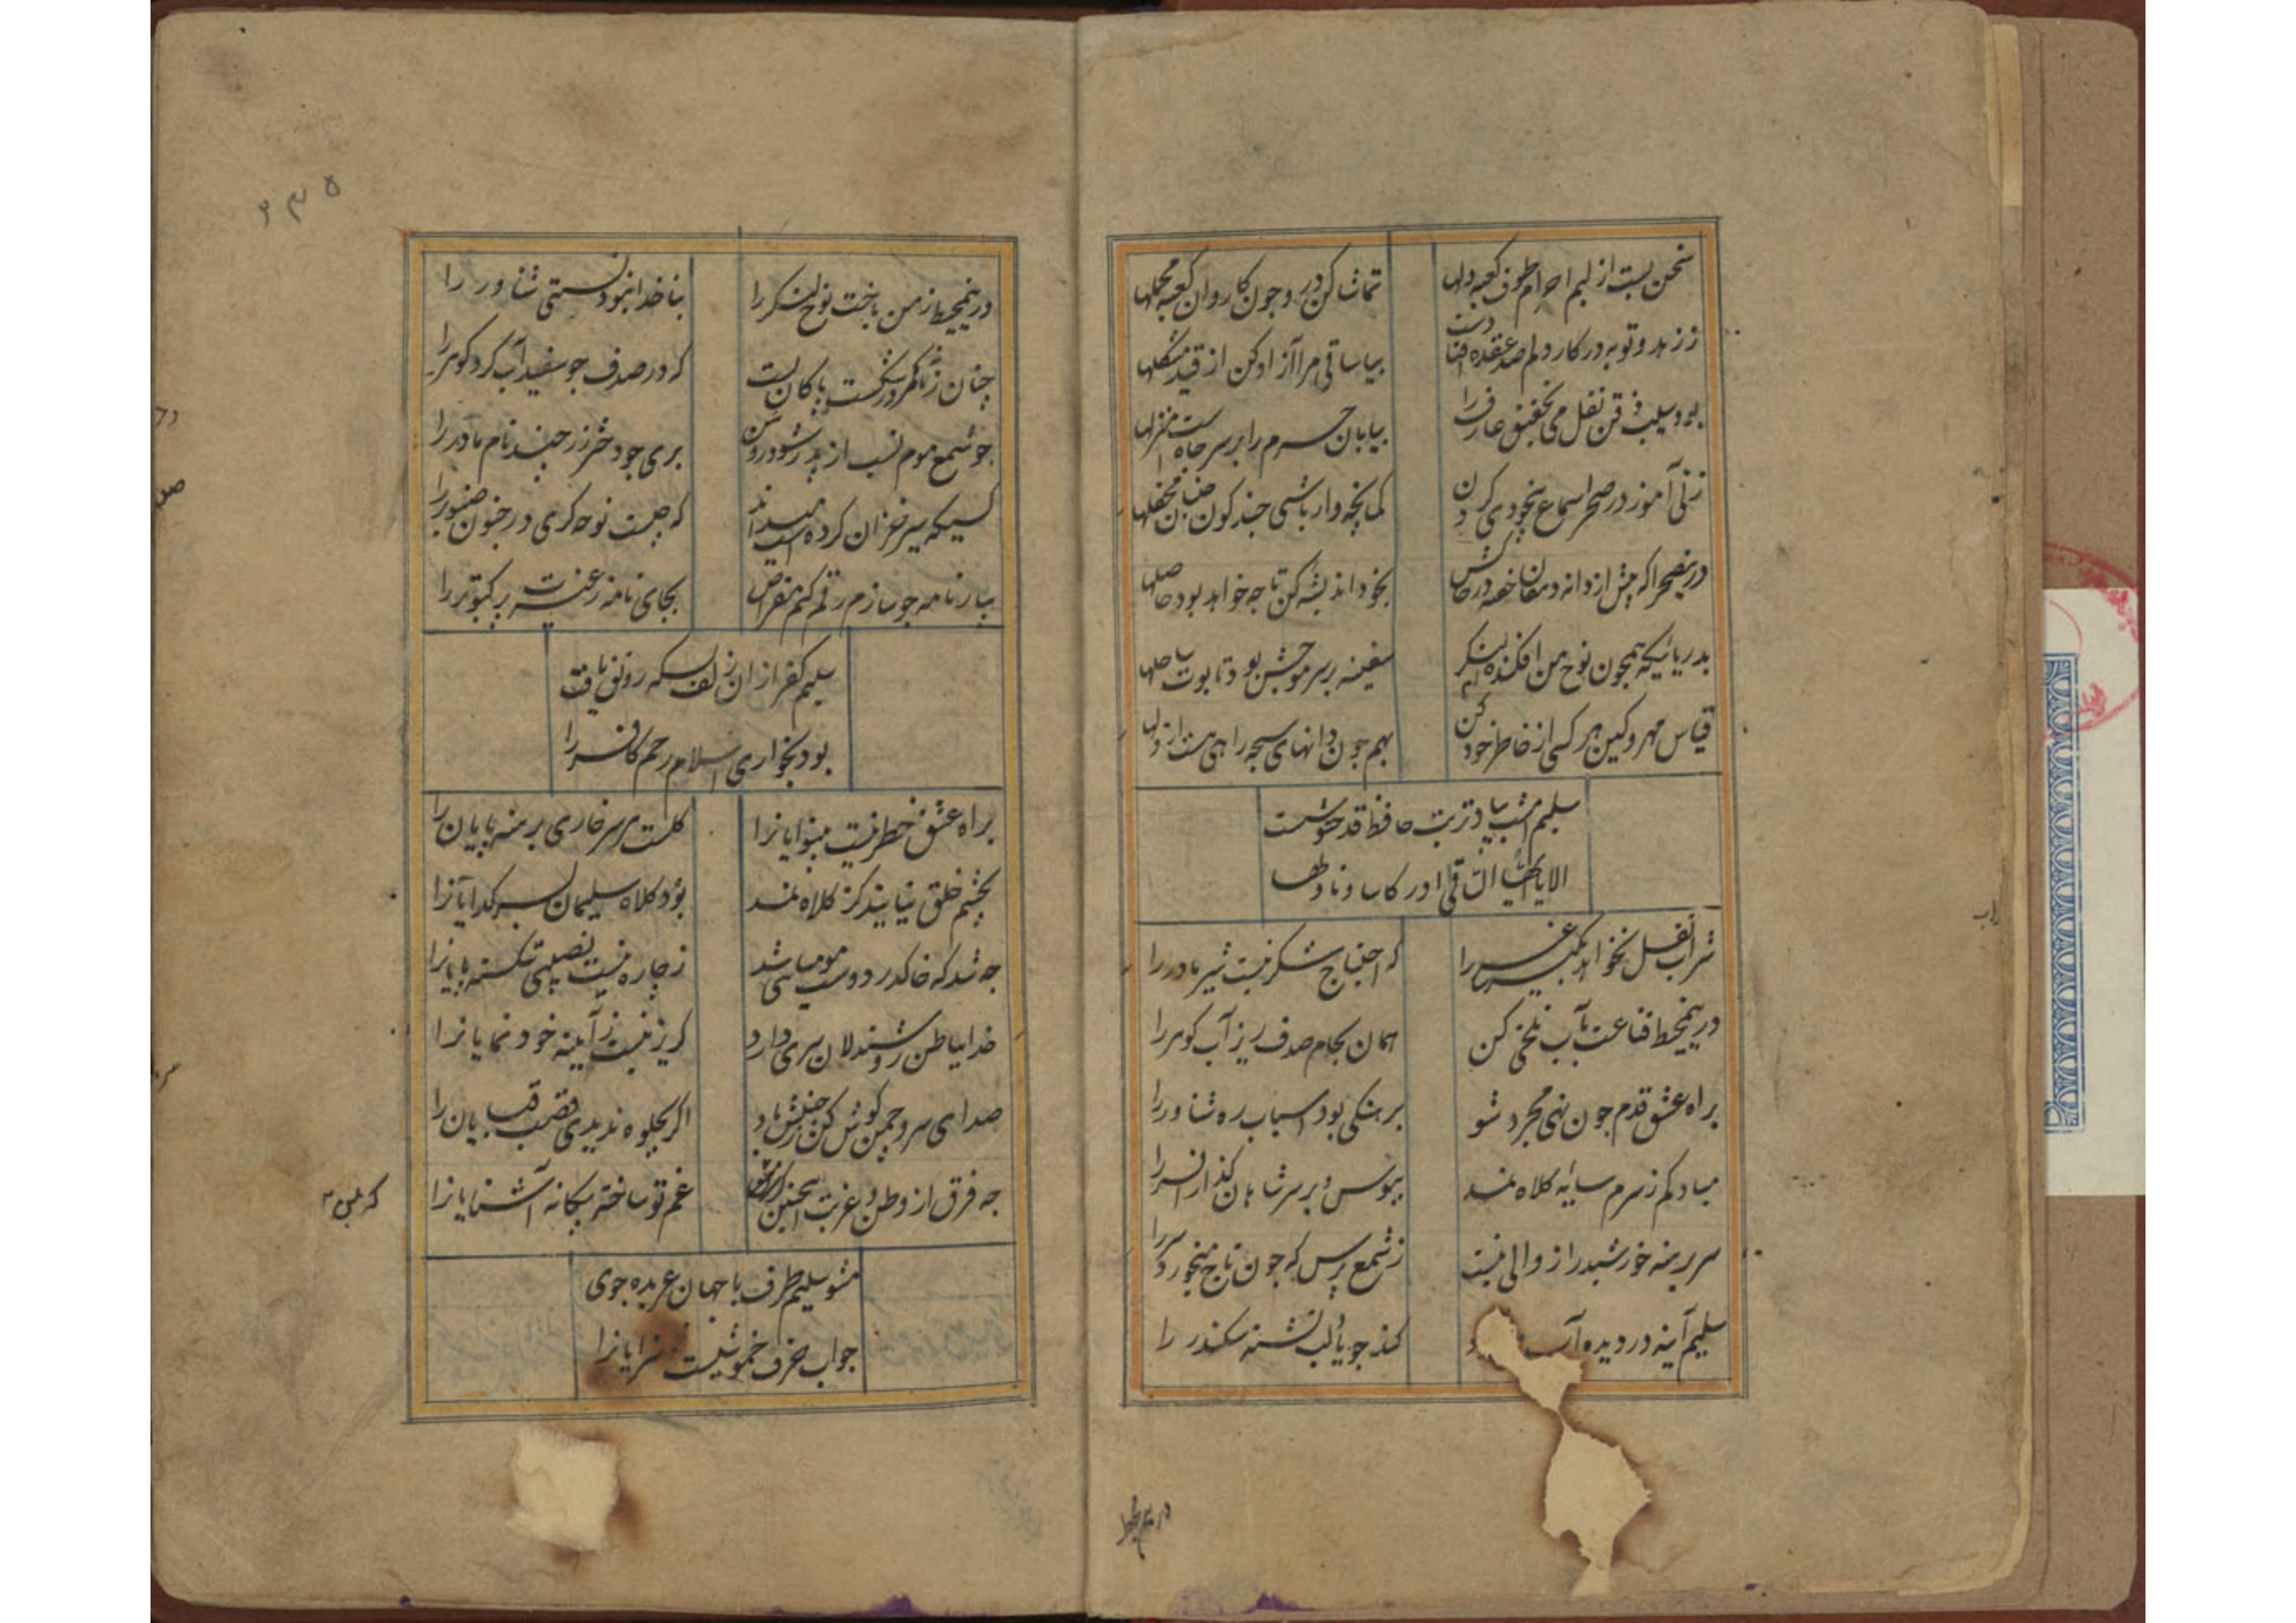 سخن بست از لبم احرام طوف کعبه دلها
تماشا کن در و چون کاروان کعبه محملها
ز زهد و توبه در کار دلم صد عقده افتادست
بیا ساقی مرا آزاد کن از قید مشکلها
بود سلب فن نقل می تحقیق عارف را
بیابان حرم را بر سر چاه است منزلها
ز نی آموز در صحرا سماع بیخودی کردن
کمانچه وار باشی چند کون جنبان محفلها
درین صحرا که پیش از دانه دهقان خفته در خاکش
بخود اندیشه کن تا چه خواهد بود حاصلها
بدریائیکه همچون نوح من افکنده ام لنگر
سفینه بر سر موجش بود تابوت ساحلها
قیاس مهر و کین هر کسی از خاطر خود کن
بهم چون دانهای سبحه راهی هست از دلها
سلیم امشب بیاد تربت حافظ قدح نوشست
الا یا ایها الساقی ادر کاسا و ناولها
شراب نقل نخواهد بگیر ساغر را
که احتیاج شکر نیست شیر مادر را
درین محیط قناعت بآب تلخی کن
همان بجام صدف ریز آب گوهر را
براه عشق قدم چون نهی مجرد شو
برهنگی بود اسباب ره شناور را
مباد کم ز سرم سایه کلاه نمد
ببوس و بر سر شاهان گذار افسر را
سر برهنه خورشید را زوالی نیست
ز شمع پرس که چون تاج میخورد سر را
سلیم آینه در دیده آب
کند چو یاد لب تشنه سکندر را
درین محیط
۲۳۵
درین محیط ز من باخت نوح لنگر را
بناخدا ننمود نستی شناور را
چنان زمانه کمر در شکست پاکان بست
که در صدف چو سفید آب کرد گوهر را
چو شمع موم نسب از پدر شود روشن
بری چو دختر رز چند نام مادر را
کسیکه سیر خزان کرده است میداند
که چیست نوحه گری در جنون صنوبر را
بیار نامه چو سازم رقم کنم مقراض
بجای نامه ز غیرت پر کبوتر را
سلیم کفر از ان زلف بسکه رونق یافت
بود بخواری اسلام رحم کافر را
براه عشق خطر نیست بینوایانرا
گلست هر سر خاری برهنه پایانرا
بچشم خلق نیایند کز کلاه نمد
بود کلاه سلیمان بسر گدایانرا
چه شد که خاک در دوست مومیا باشد
ز چاره نیست نصیبی شکسته پایانرا
خدا بباطن روشندلان سری دارد
گریز نیست ز آیینه خود نمایانرا
صدای سرو چمن گوش کن ز جنبش باد
اگر بجلوه ندیدی قصب قبایان را
چه فرق از وطن و غربت اینچنین
غم تو ساخته بیگانه آشنایانرا
که بلبل
مشو سلیم طرف با جهان عربده جوی
جواب حرف خموشیست هرزه سرایانرا